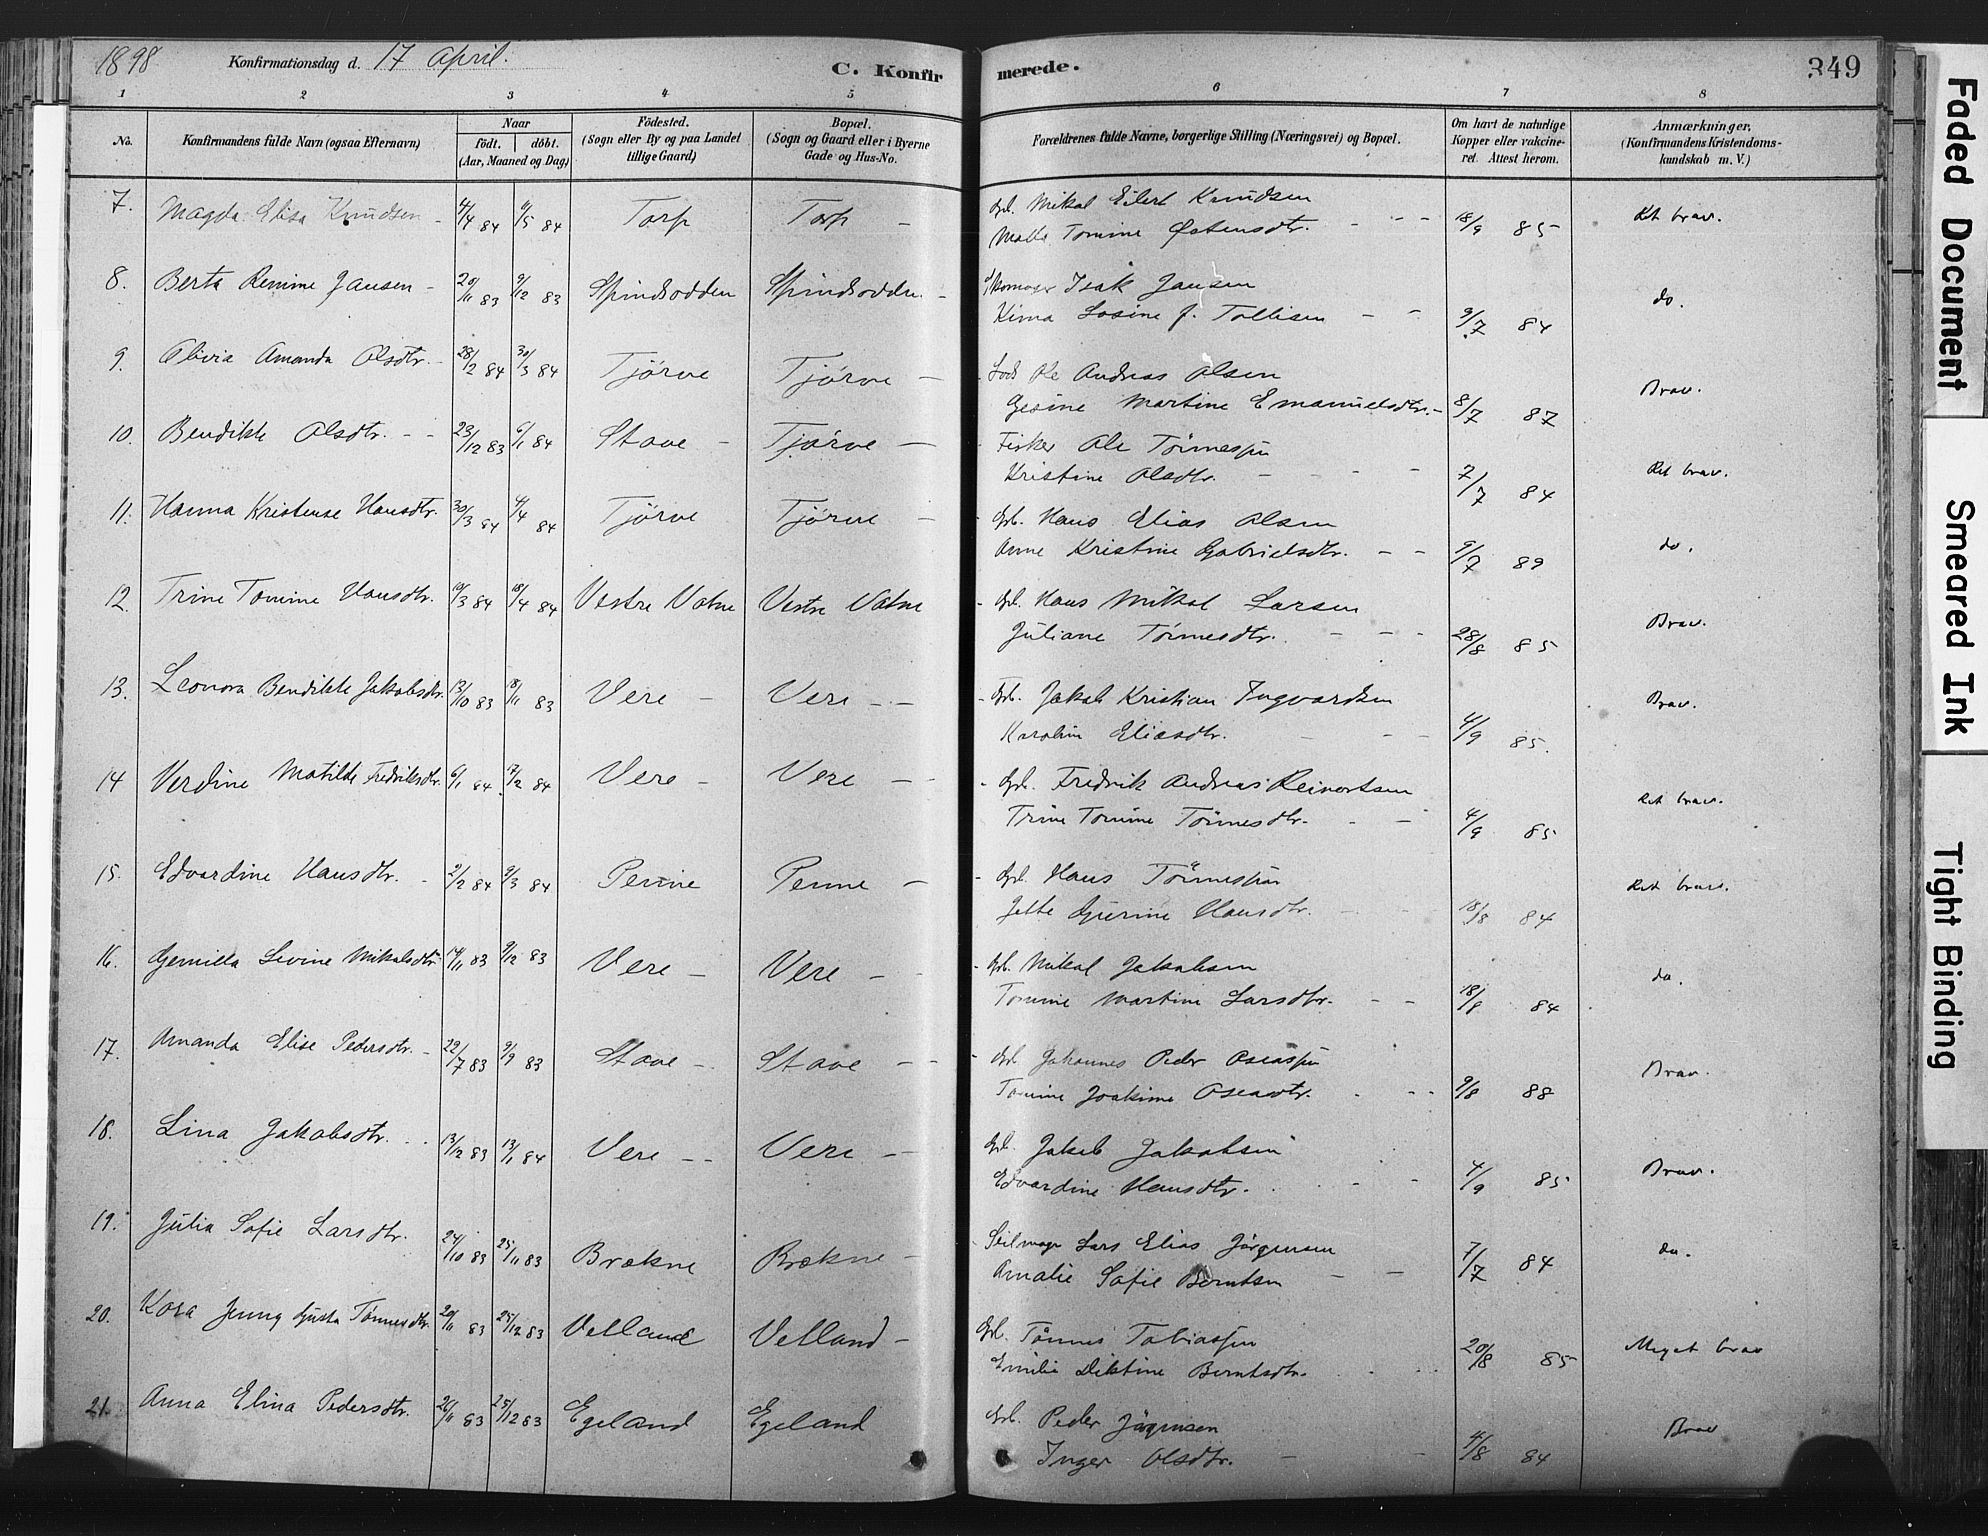 1898 Konfirmationsdag d. 17 April. C. Konfirmerede. 349
1 2 3 4 5 6 7 8
No. Konfirmandens fulde Navn (ogsaa Efternavn) Naar født. døbt. (Aar, Maaned og Dag) Fødested. (Sogn eller By og paa Landet tillige Gaard) Bopæl. (Sogn og Gaard eller i Byerne Gade og Hus-No. Forældrenes fulde Navne, borgerlige Stilling (Næringsvei) og Bopæl. Om havt de naturlige Kopper eller vakcineret. Attest herom. Anmærkninger, (Konfirmandens Kristendomskundskab m. V.)
7. Magda Elisa Knudsen - 4/4 84 4/5 84 Torp Torp - Gbl. Mikal Eilert Knudsen
Malle Tomine Østensdtr. - - - 18/9 85 Ret brav.
8. Berta Remine Jansen - 20/11 83 9/12 83 Spindsodden Spindsodden - Skomager Isak Jansen
Kima Losine f. Tallisen - - 9/7 84 do.
9. Olivia Amanda Olsdtr. - 28/2 84 30/3 84 Tjørve Tjørve - Lods Ole Andreas Olsen
Gesine Martine Emanuelsdtr. - 8/7 87 Brav.
10. Bendikte Olsdtr. - - 23/12 83 6/1 84 Stave - Tjørve - Fisker Ole Tönnessen
Kristine Olsdtr. - - - - 7/7 84 Ret brav.
11. Hanna Kristense Hansdtr. 30/3 84 4/4 84 Tjørve Tjørve - Gbl. Hans Elias Olsen
Anne Kristine Gabrielsdtr. - - 9/7 89 do.
12. Trine Tomine Hansdtr. 10/3 84 18/4 84 Vestre Vatne Vestre Vatne Gbl. Hans Mikal Larsen
Juliane Tönnesdtr. - - - 28/8 85 Brav.
13. Leonora Bendikte Jakobsdtr. 13/10 83 18/11 83 Vere - Vere - - Gbl. Jakob Kristian Ingvardsen
Karoline Eliasdtr. - - - 4/9 85. Brav.
14 Verdine Matilde Fredriksdtr. 6/1 84 17/2 84 Vere - Vere - Gbl. Fredrik Andreas Reinertsen
Trine Tomine Tönnesdtr. - - 4/9 85 Ret brav.
15. Edvardine Hansdtr. - 2/2 84 9/3 84 Penne Penne - Gbl. Hans Tönnessen
Jette Gurine Hansdtr. - - 18/8 84 Ret brav.
16. Gemilla Levine Mikalsdtr 14/11 83 9/12 83 Vere - Vere - - Gbl. Mikal Jakobsen
Tomine Martine Larsdtr. - - 18/8 84 do.
17. Amanda Elise Pedersdtr. - 22/7 83 9/9 83 Stave - Stave - - Gbl. Johannes Peder Oseassen
Tomine Joakime Oseasdtr. - - - 9/8 88 Brav.
18. Lina Jakobsdtr. - - 13/12 83 13/1 84 Vere - - Vere - - Gbl. Jakob Jakobsen
Edvardine Hansdtr. - - - 4/9 85 Brav.
19. Julia Sofie Larsdtr. 24/10 83 25/11 83 Brekne Brekne - Seilmager Lars Elias Jörgensen
Amalie Sofie Berntsen - - 7/7 84 do.
20. Kora Jenny Gusta Tönnesdtr. 20/11 83 25/12 83 Velland Velland - Gbl. Tönnes Tobiassen
Emilie Diktine Berntsdtr. - - 20/8 85 Meget brav
21. Anna Elina Pedersdtr. 20/11 83 25/12 83 Egeland Egeland Gbl. Peder Jörgensen
Inger Olsdtr. - - 4/8 84 Brav
Faded Document
Smeared Ink
Tight Binding